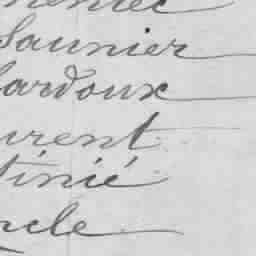 Saunier
ardoux
urent
tinié
rcle